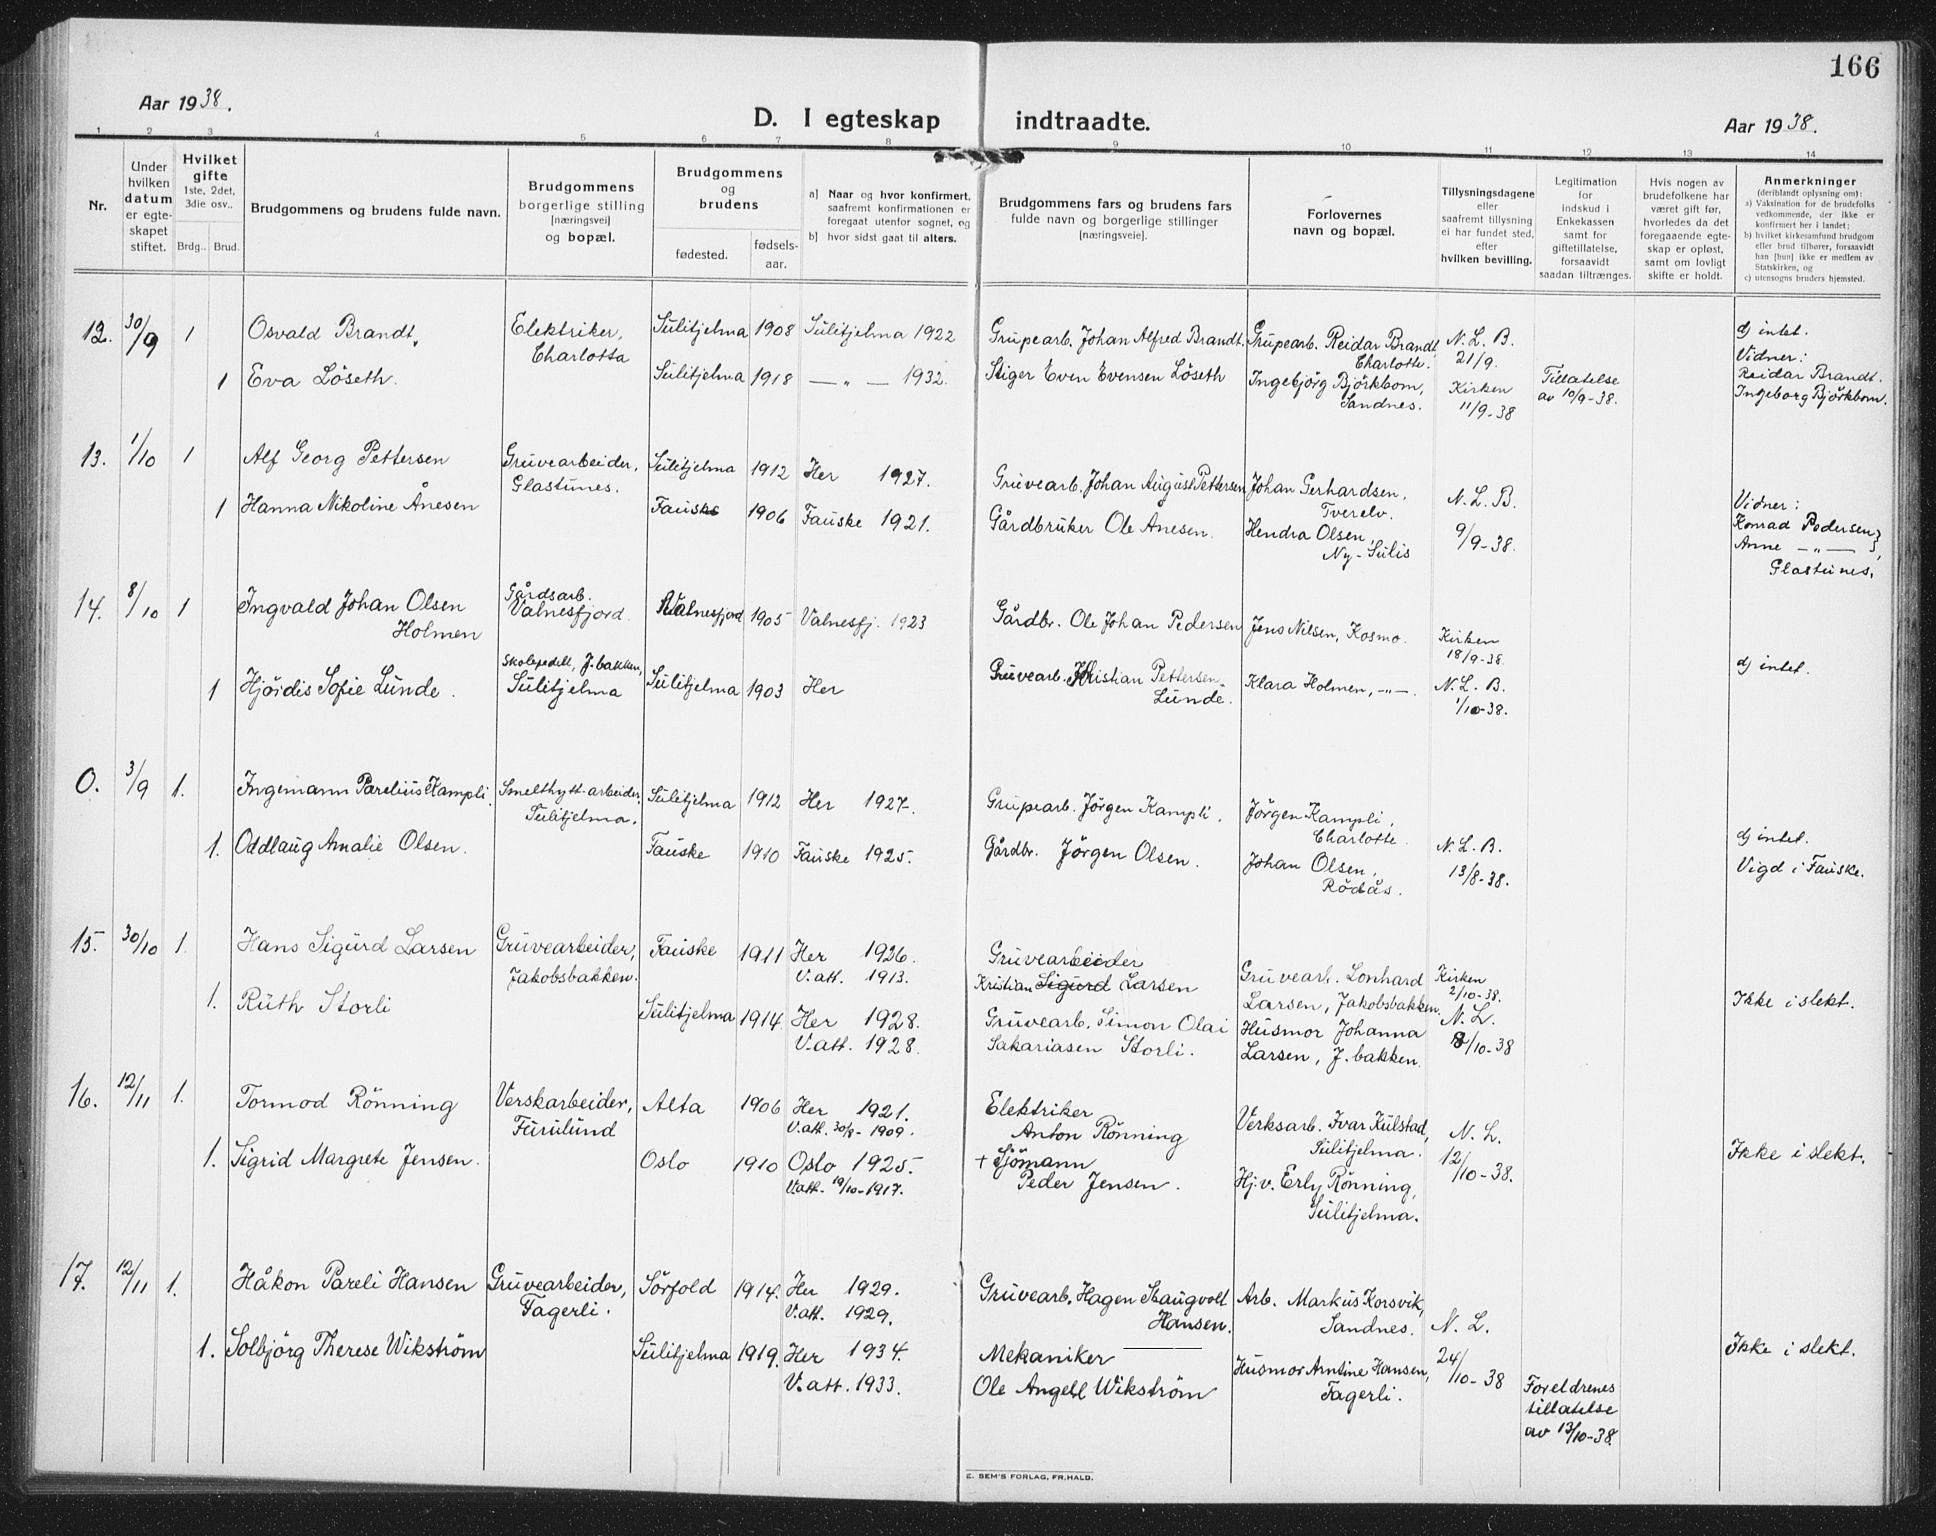 166
Aar 1938.
D. I egteskap indtraadte.
Aar 1938.
1 2 3 4 5 6 7 8 9 10 11 12 13 14
Nr.
Under hvilken datum er egteskapet stiftet.
Hvilket gifte
1ste, 2det, 3die osv..
Brdg.. Brud.
Brudgommens og brudens fulde navn.
Brudgommens borgerlige stilling [næringsvei] og bopæl.
Brudgommens og brudens
fødested.
fødselsaar.
a) Naar og hvor konfirmert, saafremt konfirmationen er foregaat utenfor sognet, og
b) hvor sidst gaat til alters.
Brudgommens fars og brudens fars fulde navn og borgerlige stillinger [næringsveie].
Forlovernes navn og bopæl.
Tillysningsdagene eller saafremt tillysning ei har fundet sted, efter hvilken bevilling.
Legitimation for indskud i Enkekassen samt for giftetillatelse, forsaavidt saadan tiltrænges.
Hvis nogen av brudefolkene har været gift før, hvorledes da det foregaaende egteskap er opløst, samt om lovligt skifte er holdt.
Anmerkninger
(deriblandt oplysning om):
a) Vaksination for de brudefolks vedkommende, der ikke er konfirmert her i landet;
b) hvilket kirkesamfund brudgom eller brud tilhører, forsaavidt han [hun] ikke er medlem av Statskirken, og
c) utensogns bruders hjemsted.
12. 30/9 1 Osvald Brandt, Elektriker, Charlotta Sulitjelma 1908 Sulitjelma 1922 Grupearb. Johan Alfred Brandt. Grupearb. Reidar Brandt, Charlotte. N. L. B. 21/9.
1 Eva Löseth. Sulitjelma 1918 — „ — 1932. Stiger Even Evensen Löseth Ingebjörg Björkbom, Sandnes. Kirken 11/9-38 Tillatelse av 10/9-38.
Ej intet.
Vidner:
Reidar Brandt.
Ingeborg Björkbom.
13. 1/10 1 Alf Georg Pettersen Gruvearbeider, Glastunes. Sulitjelma 1912 Her 1927. Gruvearb. Johan August Pettersen Johan Gerhardsen, Tverelv. N. L. B.
1 Hanna Nikoline Ånesen Fauske 1906 Fauske 1921. Gårdbruker Ole Anesen. Hendra Olsen, Ny-Sulis 9/9-38.
Vidner:
Konrad Pedersen
Anne — „ — },
Glastunes.
14. 8/10 1 Ingvald Johan Olsen Holmen Gårdsarb. Valnesfjord. Valnesfjord 1905 Valnesfj. 1923 Gårdbr. Ole Johan Pedersen Jens Nilsen, Kosmo. Kirken 18/9-38.
1 Hjördis Sofie Lunde. Skolepedell, J.bakken, Sulitjelma Sulitjelma 1903 Her Gruvearb. Kristian Pettersen Lunde. Klara Holmen, -„-. N. L. B. 1/10-38.
Ej intet.
0. 3/9 1. Ingemann Parelius Kampli. Smelthytt-arbeider, Sulitjelma. Sulitjelma 1912 Her 1927. Grupearb. Jörgen Kampli. Jörgen Kampli, Charlotte.
1. Oddlaug Amalie Olsen. Fauske 1910 Fauske 1925. Gårdbr. Jörgen Olsen. Johan Olsen, Rödås. N. L. B. 13/8-38.
Ej intet.
Vigd i Fauske.
15. 30/10 1. Hans Sigurd Larsen Gruvearbeider, Jakobsbakken. Fauske 1911 Her 1926. V.att. 1913. Gruvearbeider Kristian Sigurd Larsen Gruvearb. Lonhard Larsen, Jakobsbakken. Kirken 2/10-38.
1. Ruth Storli Sulitjelma 1914. Her 1928. V.att. 1928. Gruvearb. Simon Olai Sakariasen Storli. Husmor Johanna Larsen, J. bakken. N. L. 8/10-38
Ikke i slekt.
16. 12/11 1. Tormod Rönning Verskarbeider, Furulund Alta 1906 Her 1921. V.att. 30/8-1909. Elektriker Anton Rönning Verksarb. Ivar Kulstad, Sulitjelma. N. L.
1. Sigrid Margrete Jensen. Oslo 1910 Oslo 1925. V.att. 19/10-1917. + Sjömann Peder Jensen. Hj.v. Erly Rönning, Sulitjelma. 12/10-38.
Ikke i slekt.
17. 12/11 1. Håkon Pareli Hansen Gruvearbeider, Fagerli. Sörfold 1914. Her 1929. V.att. 1929. Gruvearb. Hagen Haugvolt Hansen. Arb. Markus Korsvik, Sandnes. N. L.
1. Solbjörg Therese Wikström Sulitjelma 1919. Her 1934. V.att. 1933. Mekaniker Ole Angell Wikström Husmor Arntine Hansen, Fagerli. 24/10-38 Foreldrenes tillatelse av 13/10-38.
Ikke i slekt.
E. SEM'S FORLAG, FR.HALD.